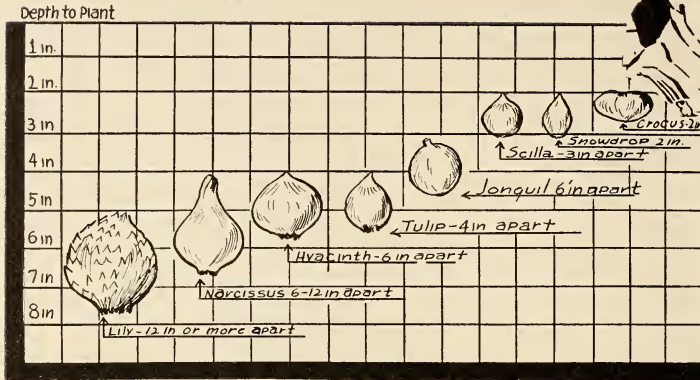 Depth to Plant
1 in.
2 in.
3 in
4 in
5 in
6 in
7 in
8 in
Crocus-2in
Snowdrop 2in.
Scilla-3in apart
Jonquil 6in apart
Tulip-4in apart
Hyacinth-6 in apart
Narcissus 6-12in apart
Lily-12 in or more apart